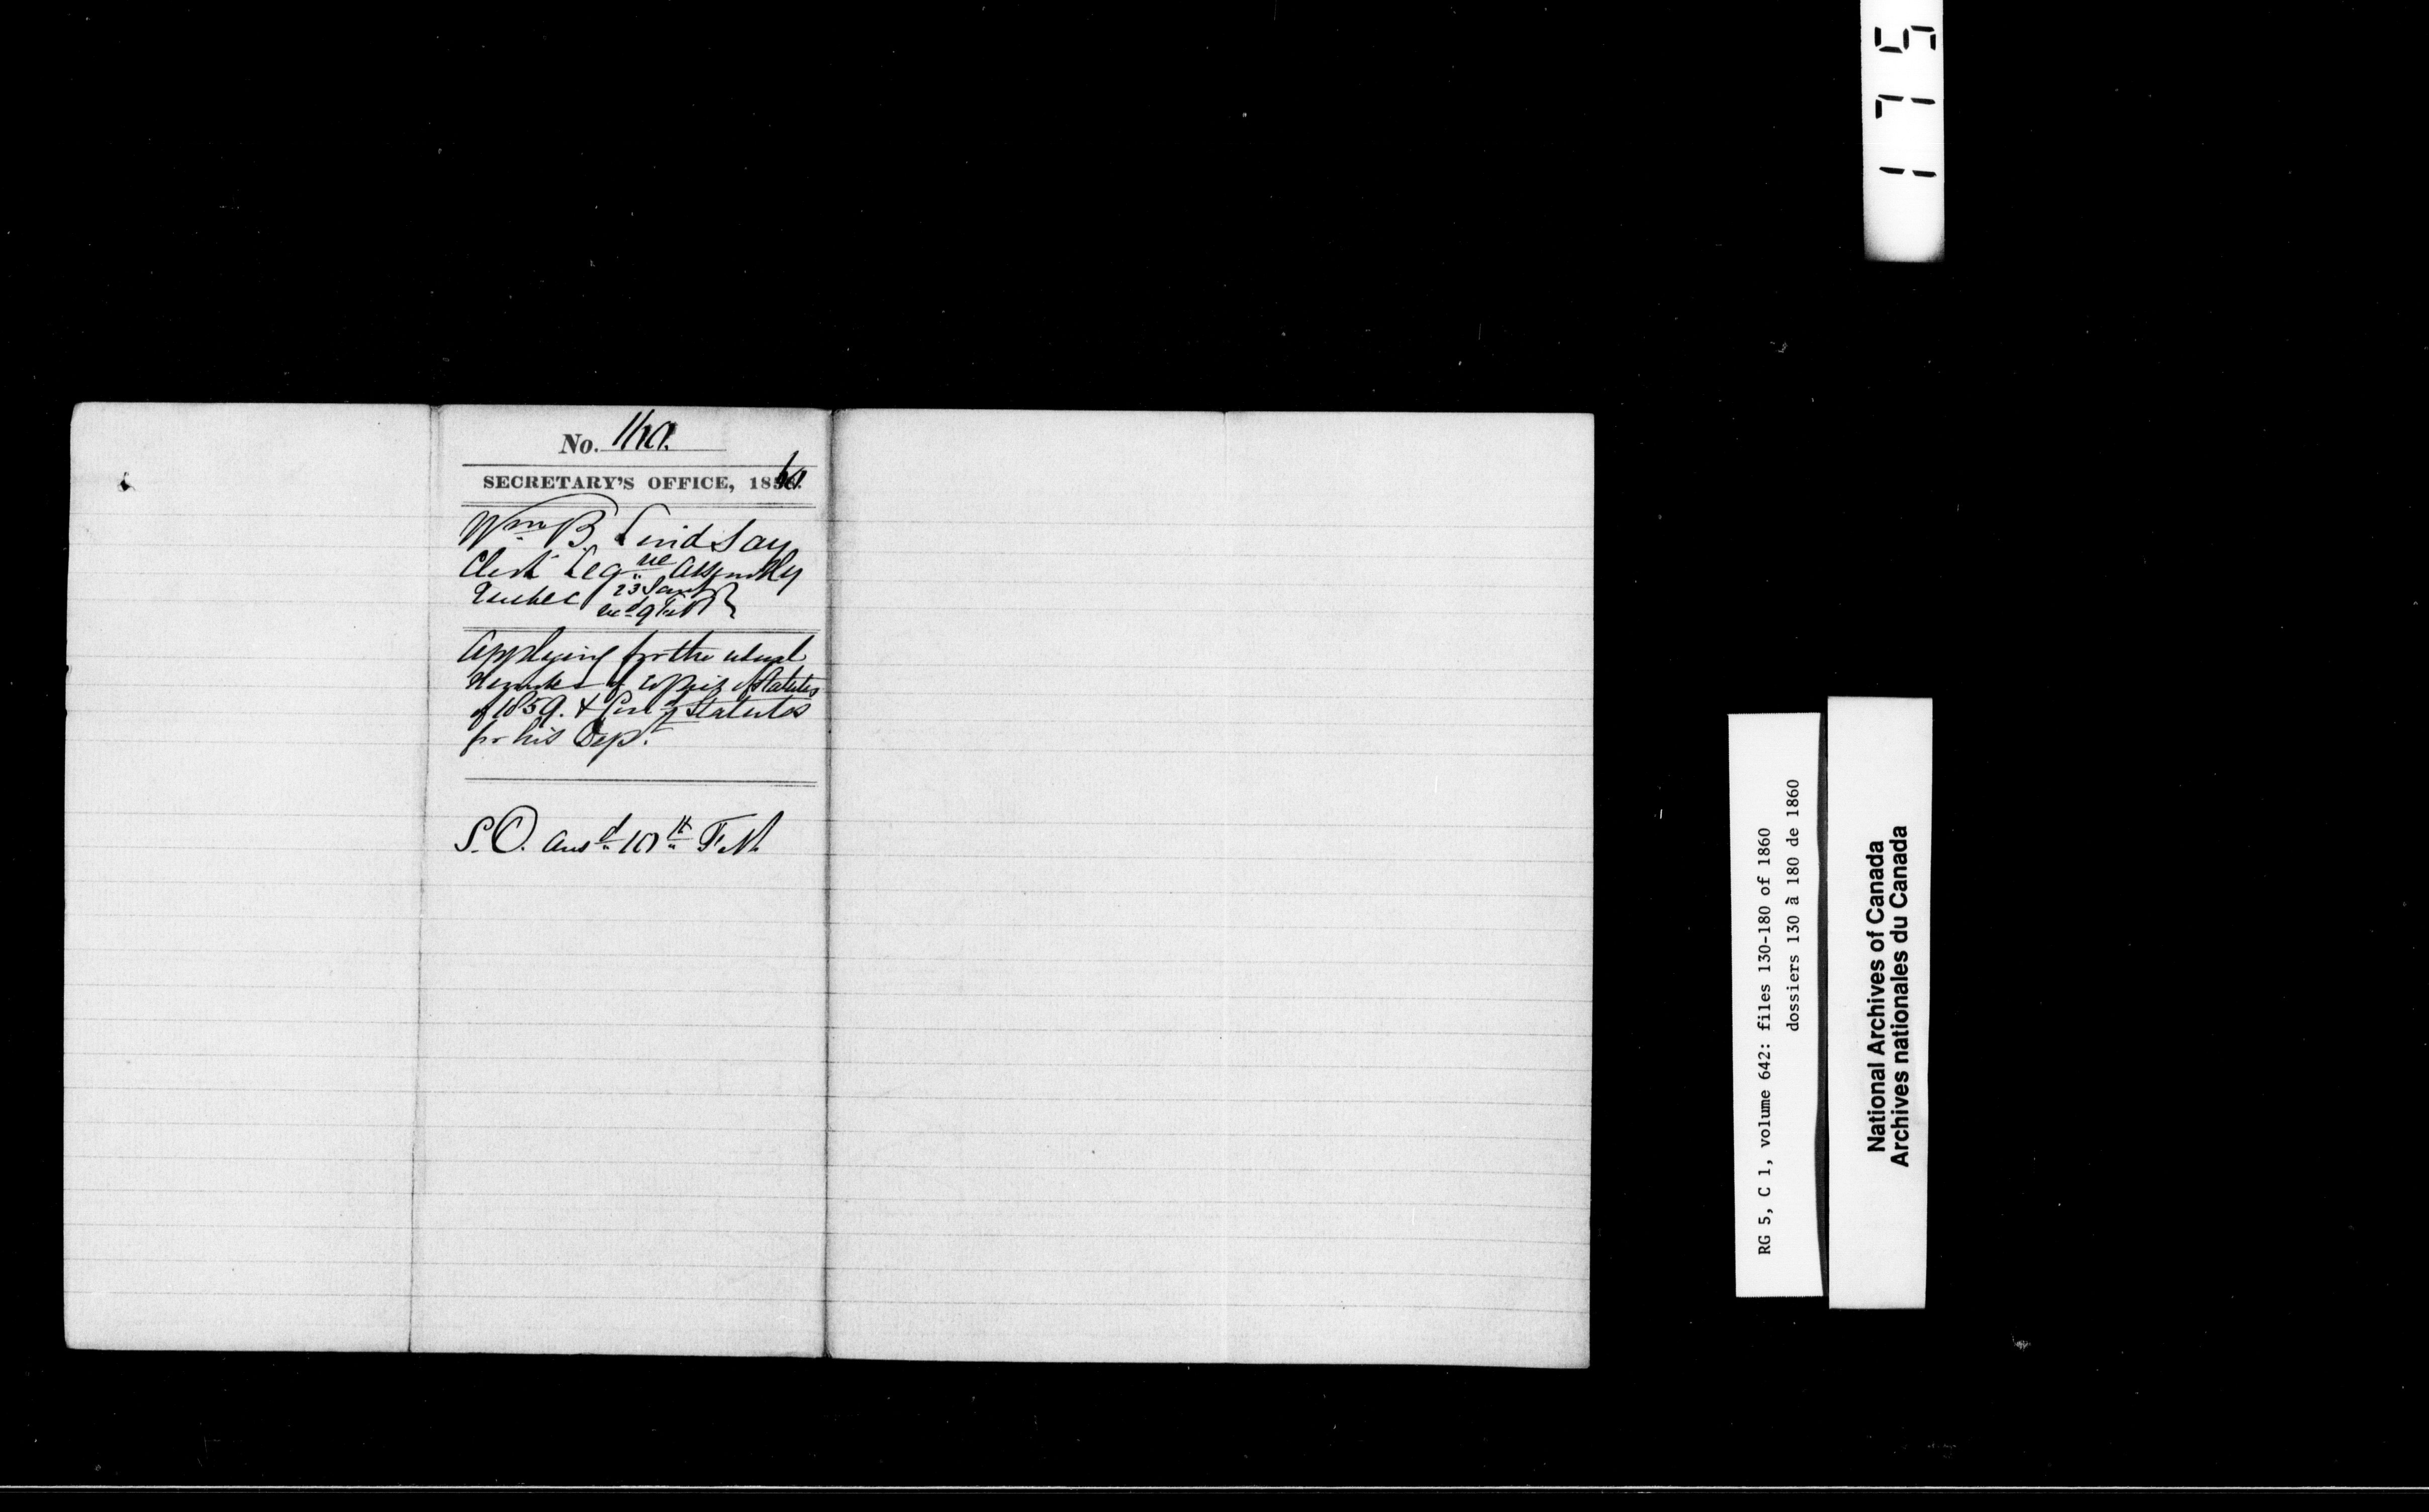 No. 160.
SECRETARY'S OFFICE, 1860.
Wm B. Lindsay
Clerk Legve Assembly
Quebec 23 Jany
recd 9 Feb
Applying for the usual
Number of copies of Statutes
of 1859. & Consd Statutes
for his Dept.
S.O. ansd 10th Feb.
175
RG 5, C 1, volume 642: files 130-180 of 1860
dossiers 130 à 180 de 1860
National Archives of Canada
Archives nationales du Canada